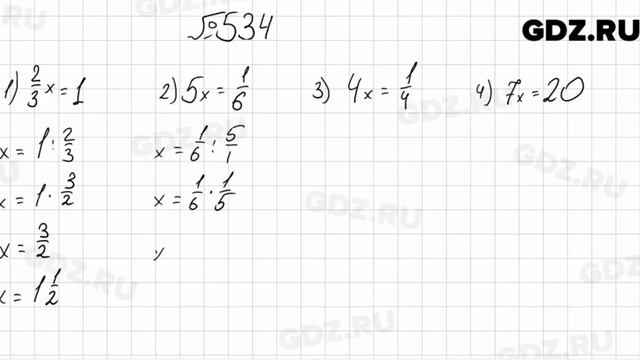 №534
GDZ.RU
1) 2/3 x = 1
x = 1 : 2/3
x = 1 · 3/2
x = 3/2
x = 1 1/2
2) 5x = 1/6
x = 1/6 : 5/1
x = 1/6 · 1/5
3) 4x = 1/4
4) 7x = 20
GDZ.RU
GDZ.RU
GDZ.RU
GDZ.RU
GDZ.RU
GDZ.RU
GDZ.RU
GDZ.RU